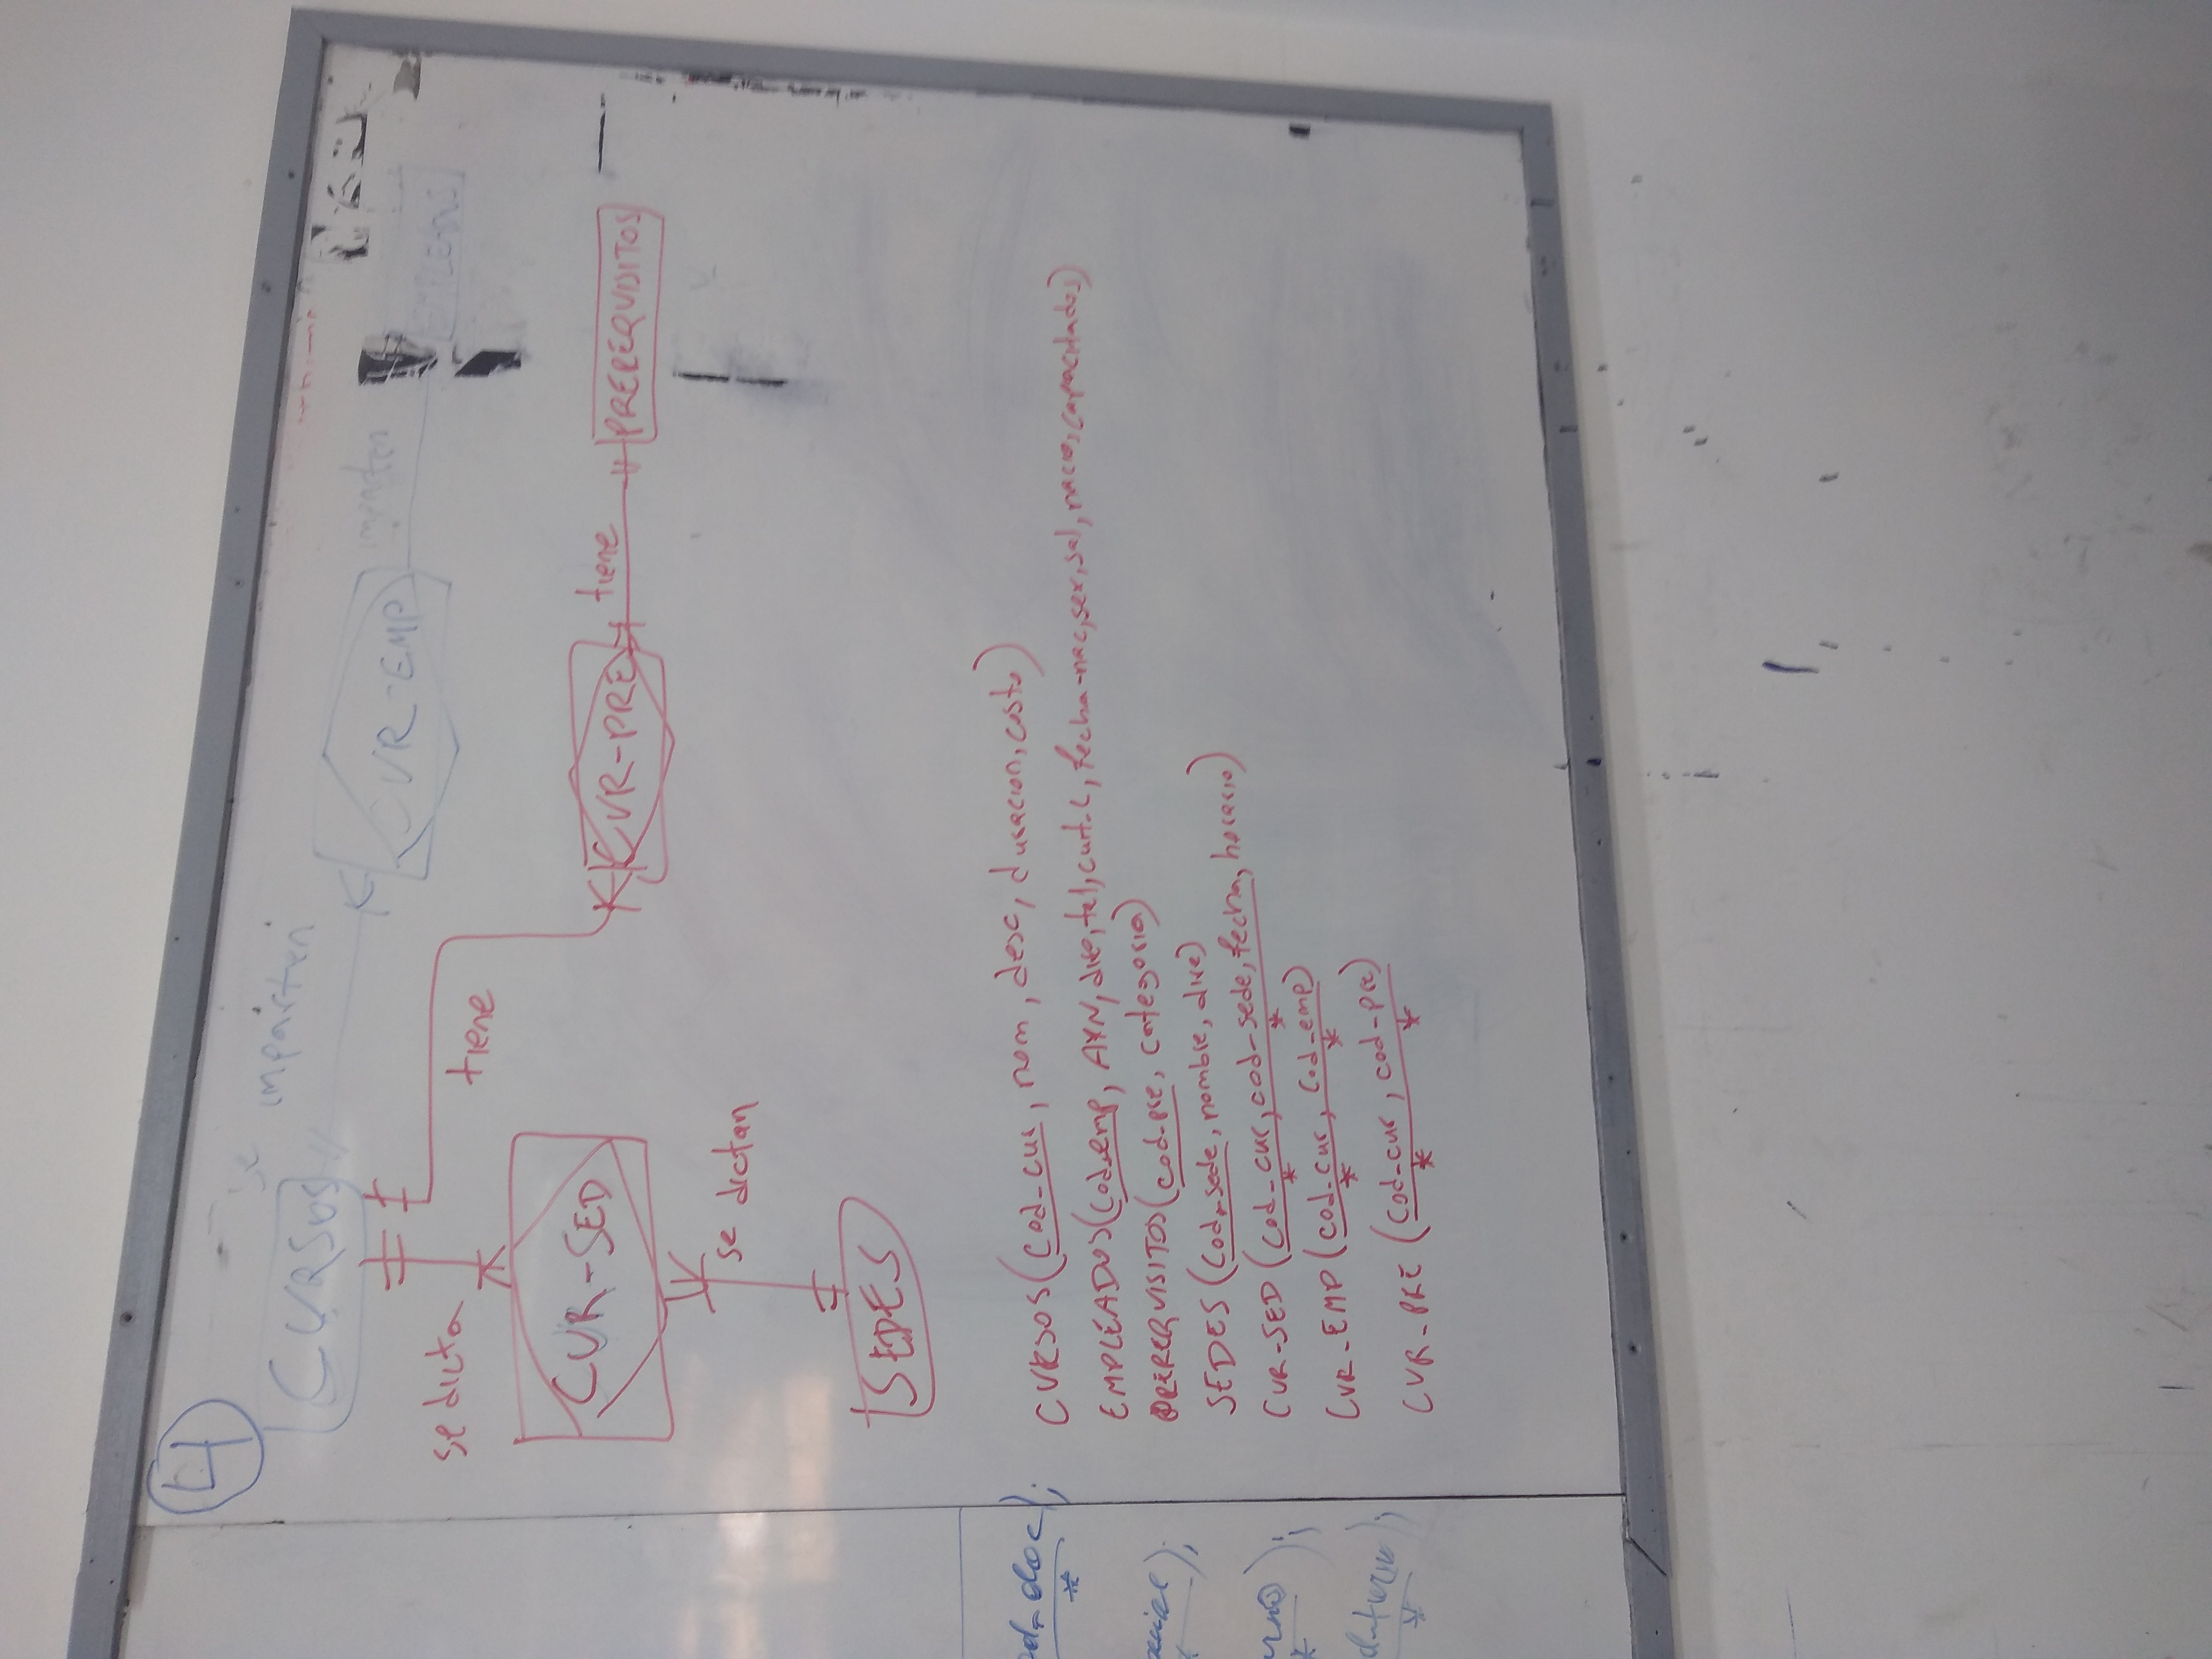 4
se imparten
CURSOS
CUR-EMP
imparten
EMPLEADOS
se dicta
tiene
CUR-SED
CUR-PRE
tiene
PREREQUISITOS
se dictan
SEDES
CURSOS(cod_cur, nom, desc, duracion, costo)
EMPLEADOS(cod_emp, AYN, dire, tel, fecha-nac, sex, sal, nacio, capacitados)
PREREQUISITOS(cod-pre, categoria)
SEDES (cod_sede, nombre, dire)
CUR-SED (cod_cur, cod-sede, fecha, horario)
* *
CUR_EMP (cod_cur, cod_emp)
* *
CUR_PRE (cod_cur, cod-pre)
* *